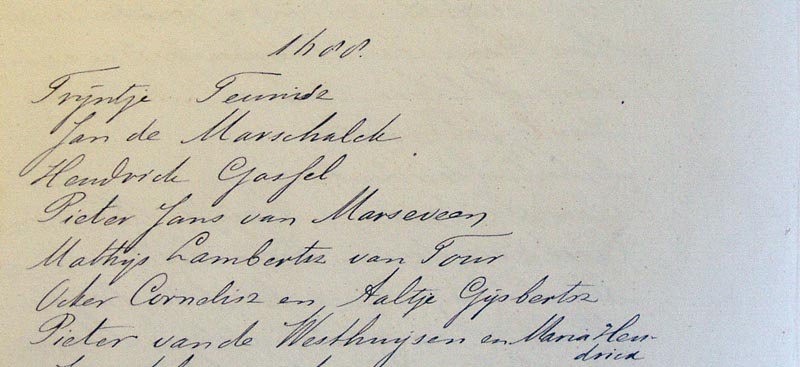 1688.
Trijntje Teunisz
Jan de Marschalck
Hendrick Gossel
Pieter Jans van Marseveen
Mathijs Lambertsz van Tour
Ocker Cornelisz en Aaltje Gijsbertsz
Pieter vande Westhuijsen en Maria Hen-
drica